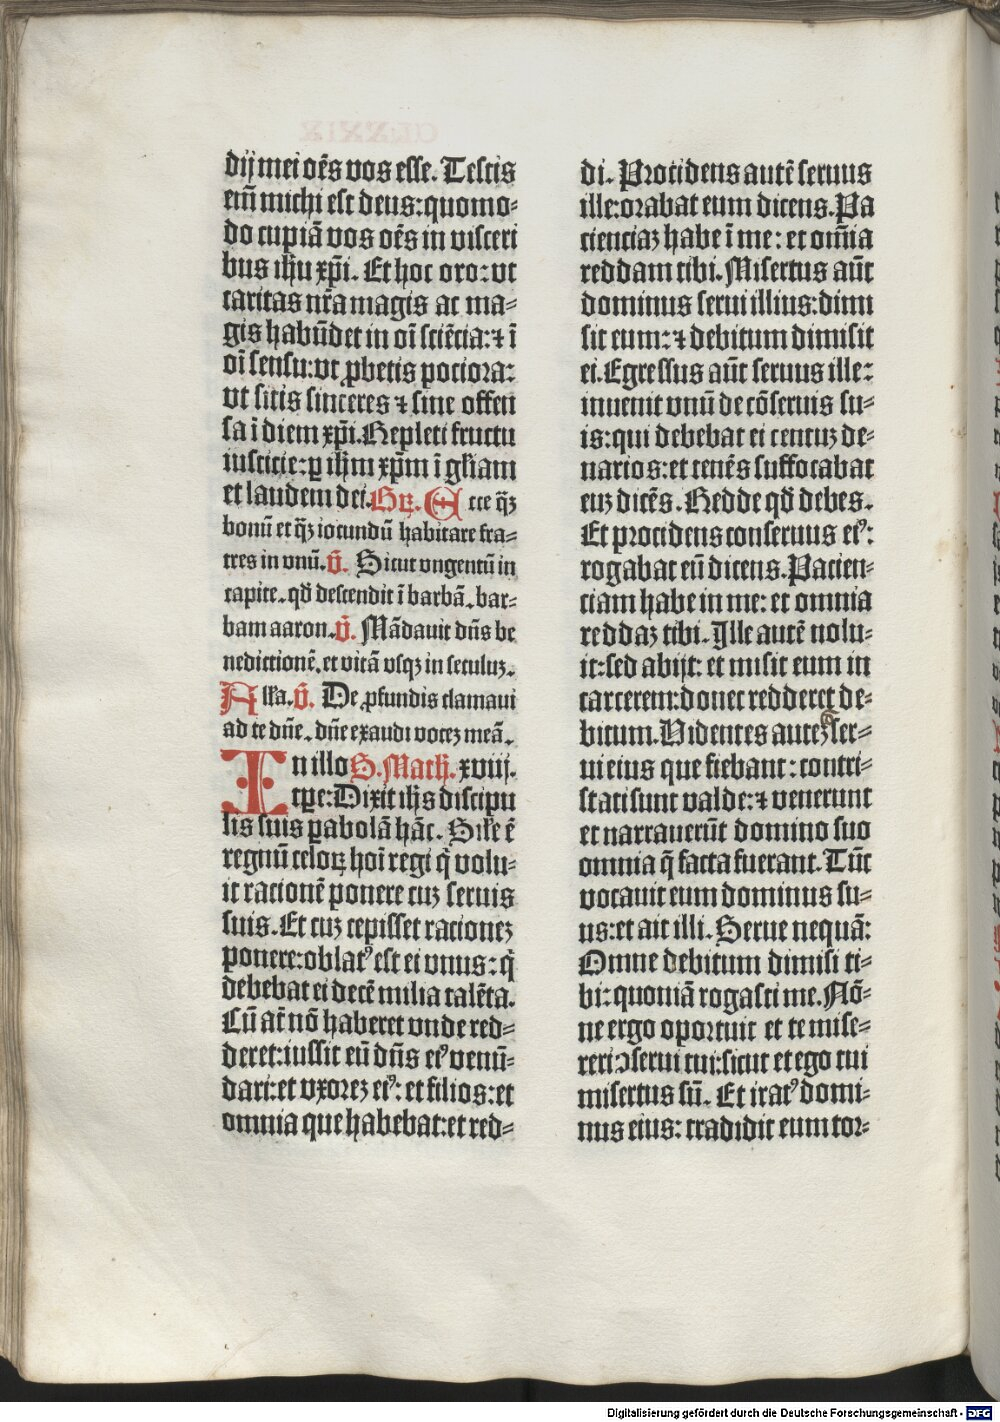 dij mei oēs vos esse. Testis
em̄ michi est deus: quomo-
do cupiā vos oēs in visceri
bus ih̄u xp̄i. Et hoc oro: vt
caritas nr̄a magis ac ma-
gis habūdet in oī sciētia: ⁊ ī
oī sensu: vt ꝓbetis pociora:
vt sitis sinceres ⁊ sine offen
sa ī diem xp̄i. Repleti fructu
iusticie: ꝑ ih̄m xp̄m ī gl̄iam
et laudem dei. Gꝝ. Ecce q̄ꝫ
bonū et q̄ꝫ iocundū habitare fra-
tres in vnū. v̄. Sicut vngentū in
capite. qd̄ descendit ī barbā. bar-
bam aaron. v̄. Mādauit dn̄s be
nedictionē. et vitā vsqꝫ in seculuꝫ.
Alla. v̄. De ꝓfundis clamaui
ad te dn̄e. dn̄e exaudi voceꝫ meā.
In illo S. Math. xviij.
tꝑe: Dixit ih̄s discipu
lis suis ꝑabolā hāc. Sil̄e ē
regnū celoꝝ hoī regi q̄ volu-
it racionē ponere cuꝫ seruis
suis. Et cuꝫ cepisset racioneꝫ
ponere: oblatꝰ est ei vnus: q̄
debebat ei decē milia talēta.
Cū at̄ nō haberet vnde red-
deret: iussit eū dn̄s eiꝰ venū-
dari: et vxoreꝫ eiꝰ: et filios: et
omnia que habebat: et red-
di. Procidens autē seruus
ille: orabat eum dicens. Pa
cienciaꝫ habe ī me: et om̄ia
reddam tibi. Misertus aūt
dominus serui illius: dimi
sit eum: ⁊ debitum dimisit
ei. Egressus aūt seruus ille:
inuenit vnū de cōseruis su-
is: qui debebat ei centuꝫ de-
narios: et tenēs suffocabat
euꝫ dicēs. Redde qd̄ debes.
Et procidens conseruus eiꝰ:
rogabat eū dicens. Pacien-
ciam habe in me: et omnia
reddaꝫ tibi. Ille autē nolu-
it: sed abijt: et misit eum in
carcerem: donec redderet de-
bitum. Videntes auteꝫ ser-
ui eius que fiebant: contri-
stati sunt valde: ⁊ venerunt
et narrauerūt domino suo
omnia q̄ facta fuerant. Tūc
vocauit eum dominus su-
us: et ait illi. Serue nequā:
Omne debitum dimisi ti-
bi: quoniā rogasti me. Nō-
ne ergo oportuit et te mise-
reri ꝯserui tui: sicut et ego tui
misertus sū. Et iratꝰ domi-
nus eius: tradidit eum tor-
Digitalisierung gefördert durch die Deutsche Forschungsgemeinschaft - DFG